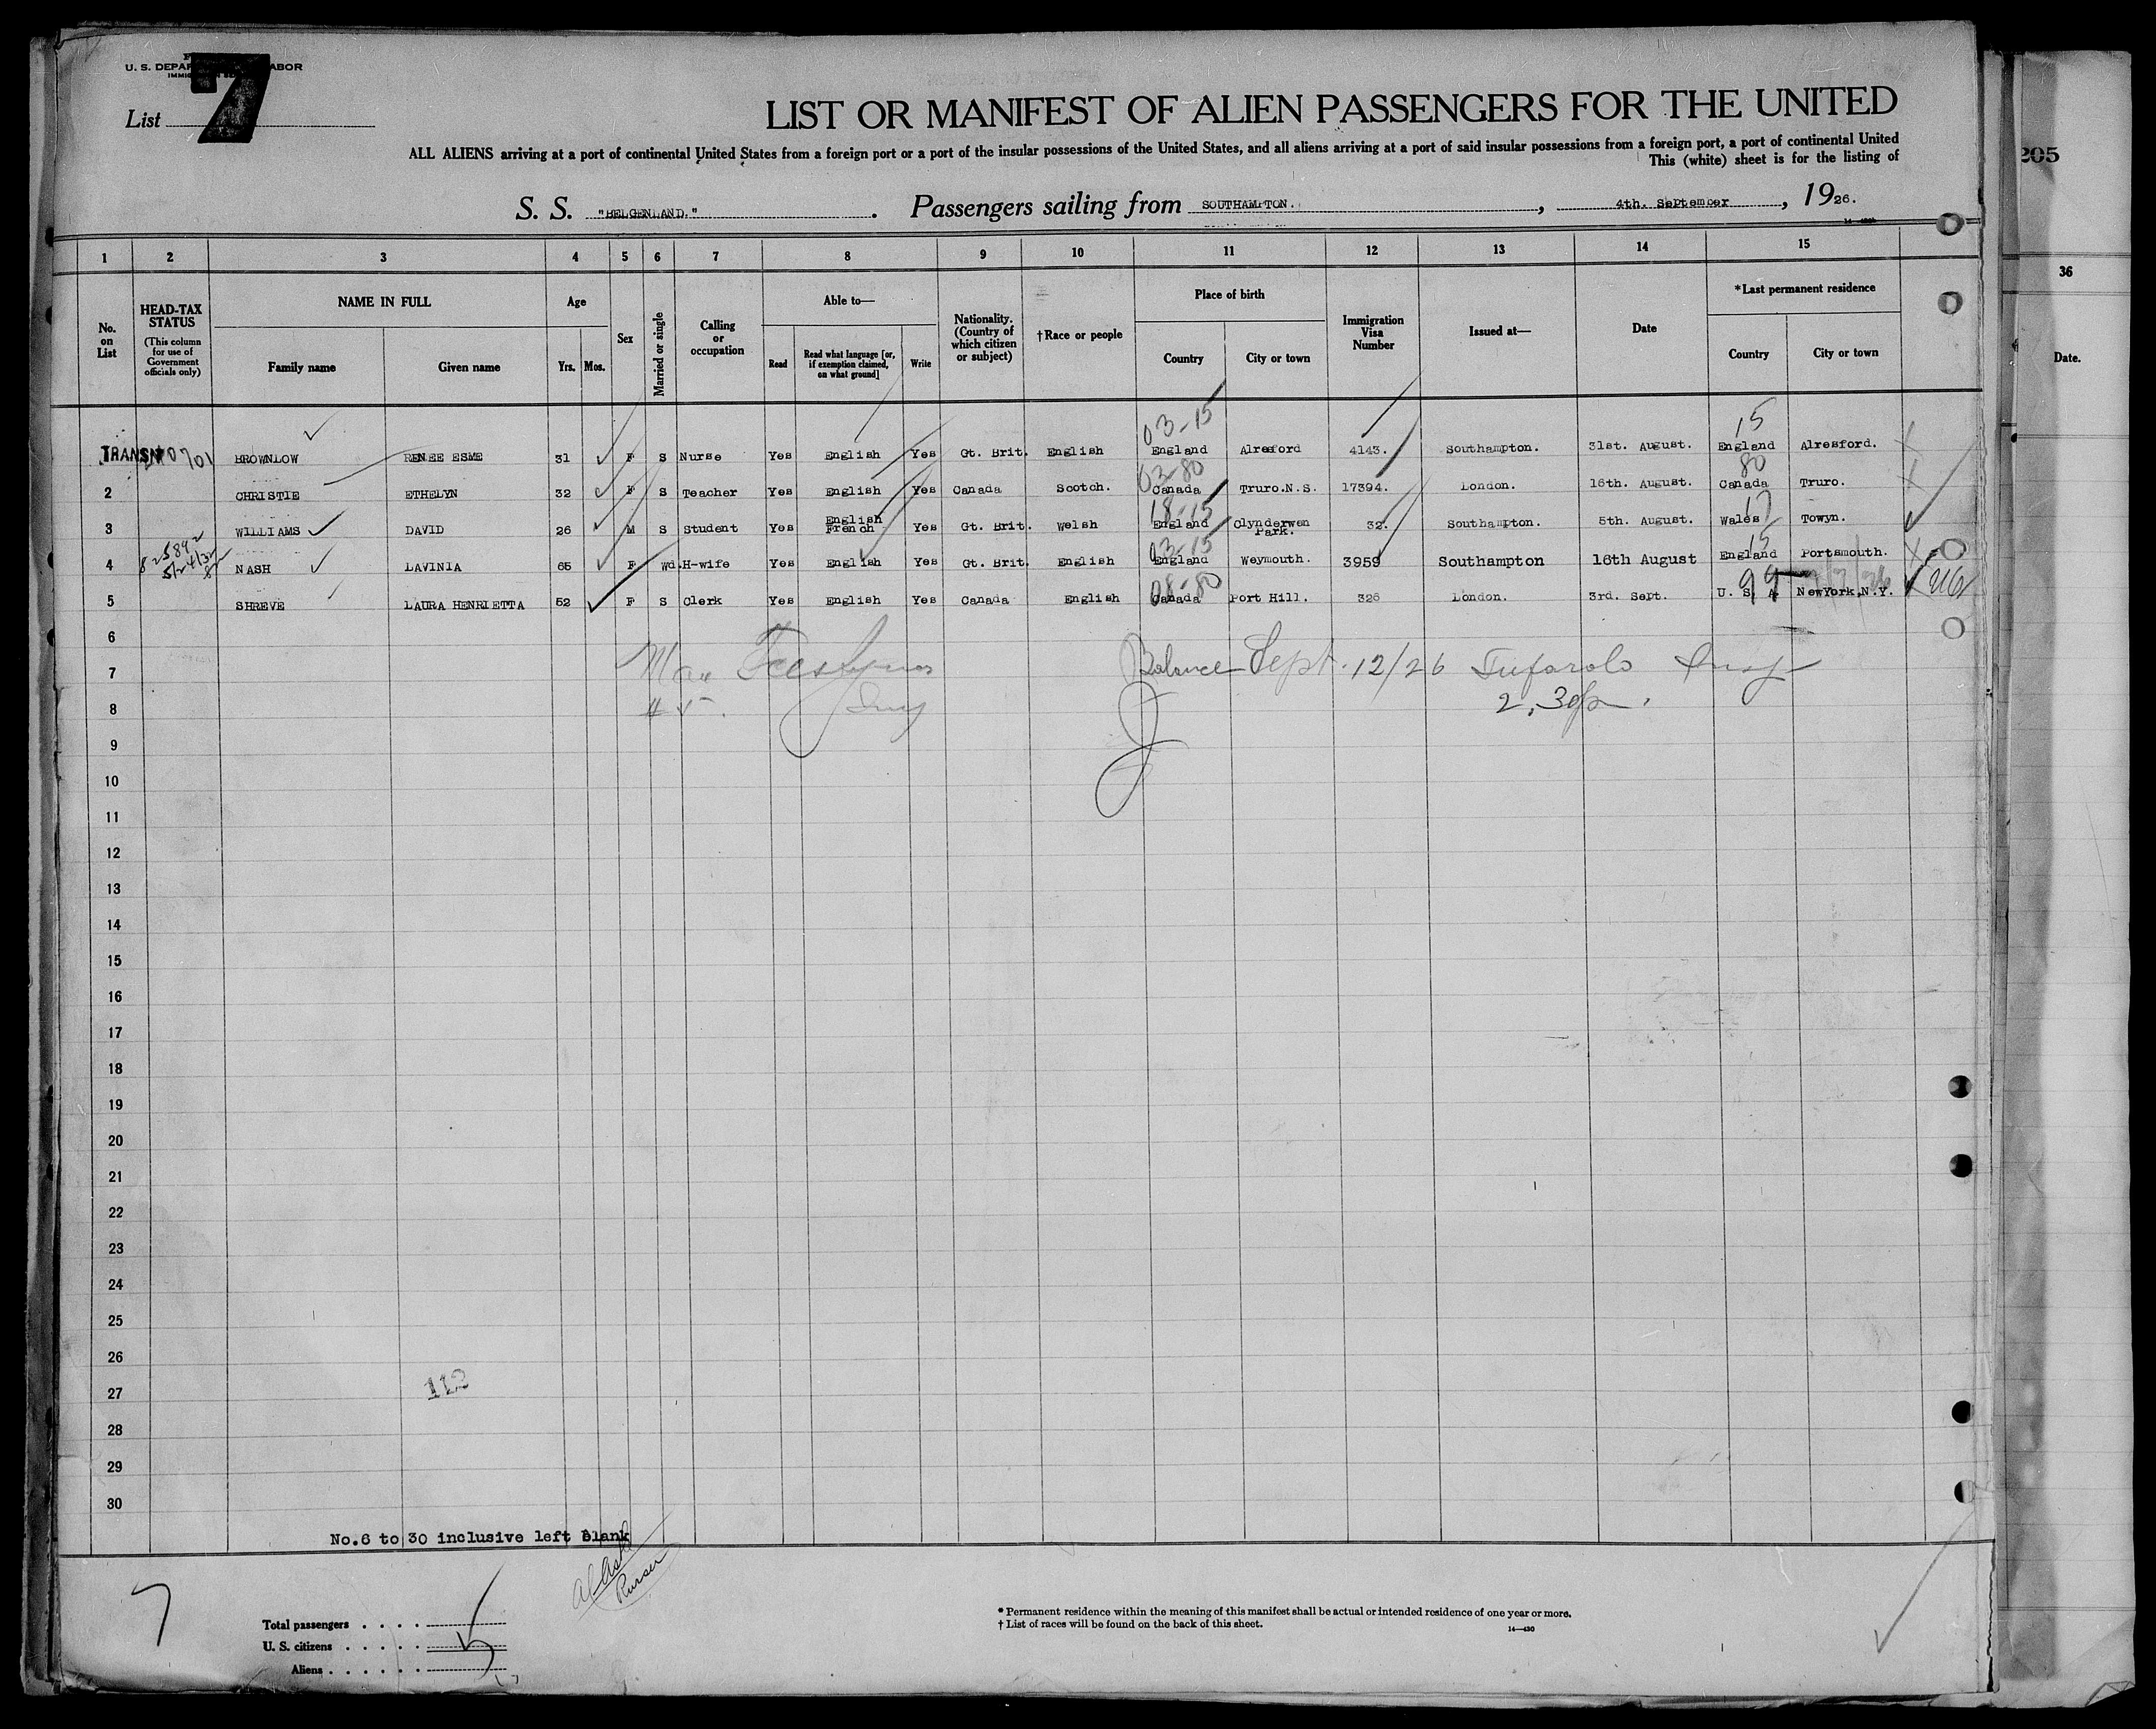 U. S. DEPAR ABOR
7
List
LIST OR MANIFEST OF ALIEN PASSENGERS FOR THE UNITED
ALL ALIENS arriving at a port of continental United States from a foreign port or a port of the insular possessions of the United States, and all aliens arriving at a port of said insular possessions from a foreign port, a port of continental United
This (white) sheet is for the listing of
205
S. S. "BELGENLAND." . Passengers sailing from SOUTHAMPTON. , 4th. September , 1926.
1 2 3 4 5 6 7 8 9 10 11 12 13 14 15 36
No. on List HEAD-TAX STATUS (This column for use of Government officials only) NAME IN FULL Family name Given name Age Yrs. Mos. Sex Married or single Calling or occupation Able to— Read Read what language [or, if exemption claimed, on what ground] Write Nationality. (Country of which citizen or subject) †Race or people Place of birth Country City or town Immigration Visa Number Issued at— Date *Last permanent residence Country City or town Date.
03-15 15
TRANSIT 0701 BROWNLOW RENEE ESME 31 F S Nurse Yes English Yes Gt. Brit. English England Alresford 4143. Southampton. 31st. August. England Alresford.
03-80 80
2 CHRISTIE ETHELYN 32 F S Teacher Yes English Yes Canada Scotch. Canada Truro.N.S. 17394. London. 16th. August. Canada Truro.
18-15 17
3 WILLIAMS DAVID 26 M S Student Yes English French Yes Gt. Brit. Welsh England Clynderwen Park. 32. Southampton. 5th. August. Wales Towyn.
03-15 15
4 NASH LAVINIA 65 F Wd. H-wife Yes English Yes Gt. Brit. English England Weymouth. 3959 Southampton 16th August England Portsmouth.
08-80 99
5 SHREVE LAURA HENRIETTA 52 F S Clerk Yes English Yes Canada English Canada Port Hill. 326 London. 3rd. Sept. U. S. A. NewYork.N.Y.
6
7 Balance Sept. 12/26
8 # 5. Insp 2.30p.
9
10
11
12
13
14
15
16
17
18
19
20
21
22
23
24
25
26
27 112
28
29
30
No.6 to 30 inclusive left blank
Purser
7
Total passengers . . . .
U. S. citizens . . . . .
Aliens . . . . . . 5
* Permanent residence within the meaning of this manifest shall be actual or intended residence of one year or more.
† List of races will be found on the back of this sheet.
14—430